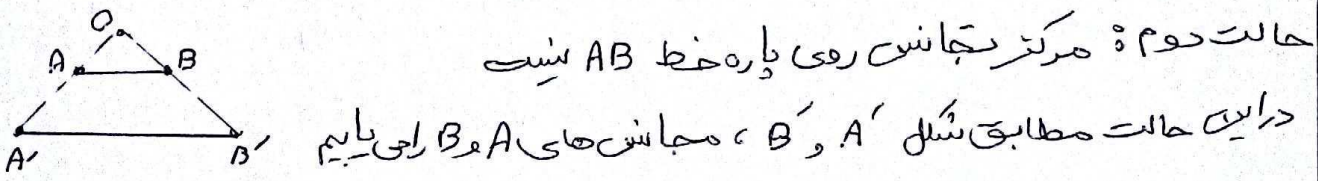 حالت دوم: مرکز تجانس روی پاره خط AB نیست
در این حالت مطابق شکل A′ و B′، مجانس های A و B را می یابیم
O
A B
A′ B′